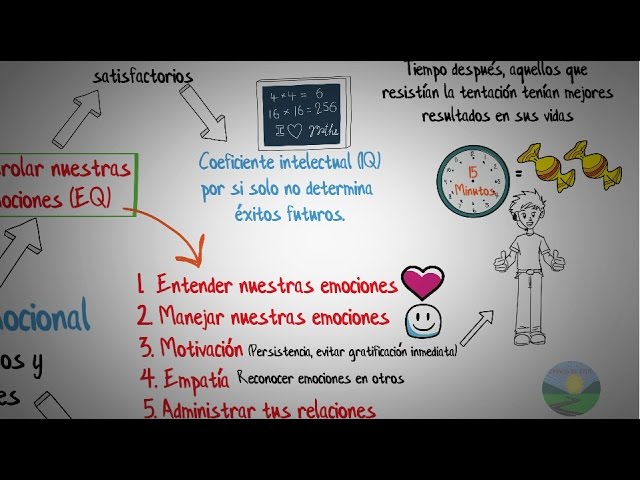 satisfactorios
4 × 4 = 6
16 × 16 = 256
I ♡ Maths
Tiempo después, aquellos que
resistían la tentación tenían mejores
resultados en sus vidas
rolar nuestras
ociones (EQ)
Coeficiente intelectual (IQ)
por si solo no determina
éxitos futuros.
15
Minutos
=
1. Entender nuestras emociones
2. Manejar nuestras emociones
3. Motivación (Persistencia, evitar gratificación inmediata)
4. Empatía Reconocer emociones en otros
5. Administrar tus relaciones
ocional
os y
es